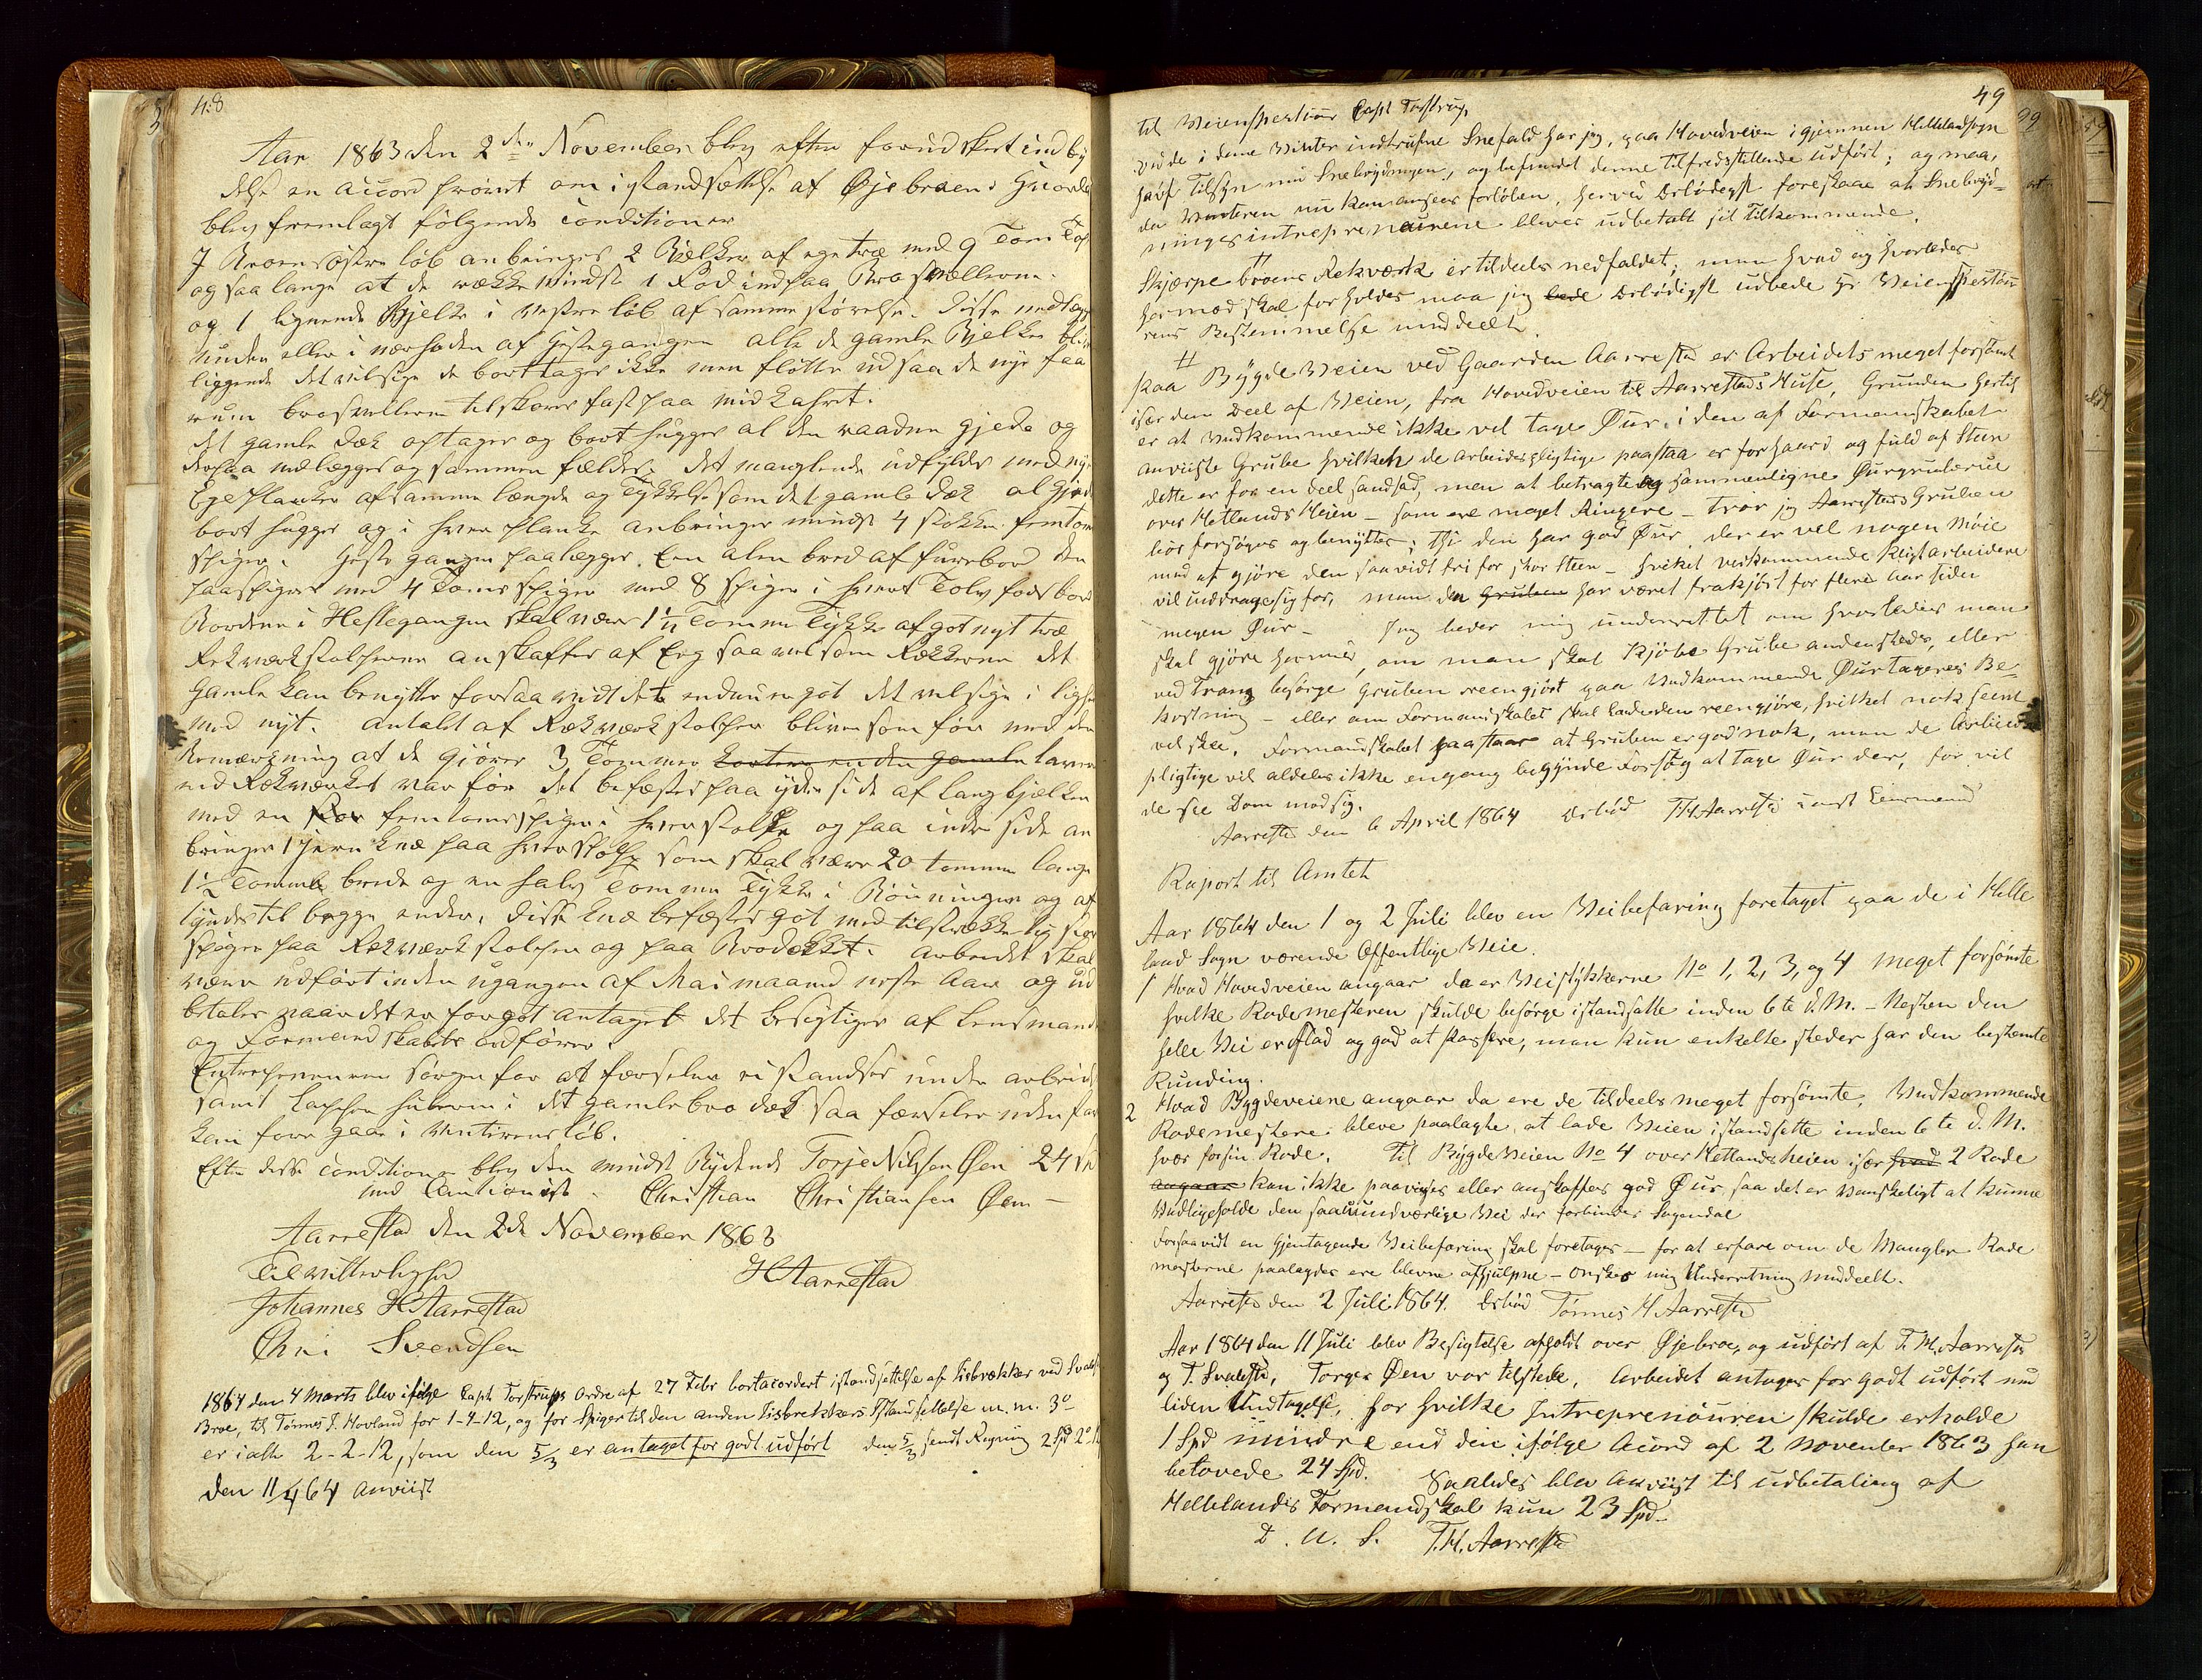 48
Aar 1863 den 2den November blev efter forud skeet indby
delse en accord prøvet om istandsættelse af Øjebroen i Huorda
blev fremlagt følgende Conditioner
I Broens østre løb anbringes 2 Bjelker af egetræ med 9 Tom Top
og saa lange at de række mindst 1 Fod indpaa Brosvellerne.
og 1 lignende Bjelke i vestre løb af samme størrelse. Disse nedlægg
under eller i nærheden af Hestegangen alle de gamle Bjelker bliver
liggende det vil sige de borttages ikke men fløttes ud saa de nye faa
rum brosvellerne tilskores fast paa midkahret.
det gamle Dæk optages og bort hugges al den raadne gjede og
derpaa nedlægges og sammen fældes. det manglende udfyldes med nye
Egeplanker af samme længde og Tykkelse som det gamle Dæk al gjede
bort hugges og i hver planke anbringes mindst 4 stökker femtom
spiger. Heste gangen paalægges. Een alen bred af furebord den
paaspigres med 4 Toms spiger med 8 spiger i hvert Tolv fods bord
Bordene i Hestegangen skal være 1 1/2 Tomme Tykke af got nyt træ
Rekværkstolperne anskaffes af Eeg saavelsom Rækkerne det
Gamle kan benyttes forsaavidt det endnu er got det vil sige i lighed
med nyt. Antalet af Rækværk stolper bliver som før med den
Bemærkning at de gjøres 3 Tommer kortere end den gamle lavere
end Rækværket var før det befæstes paa ydre side af langbjelken
med en stor femtoms spiger i hver stolpe og paa indre side an
bringes 1 jern knæ paa hver stolpe som skal være 20 tommer lange
1 1/2 Tomme brede og en halv Tomme Tykke i Böiningen og af
tyndes til begge ender. disse knæ befæstes got med tilstrækkelig stor
spiger paa Rækværk stolpen og paa Brodækket. Arbeidet skal
være udført inden udgangen af Mai maaned neste Aar og ud
betales naar det er for got antaget det besigtiges af Lensmand
og Formandskabets ordfører.
Entreprenøren sørger for at færselen ei standses under arbeidet
samt lapper hullerne i det gamle bro dæk saa færselen uden fare
kan fore gaa i Vinterens løb.
Efter disse Conditioner blev den mindst Bydende Torje Nilsen Øen 24 Spd
med Cautionist. Christian Christiansen Øen —
Aarrestad den 2de November 1863
Til vitterlighed
H Aarrestad
Johannes H Aarrestad
Chri Svendsen
1864 den 4 Marts blev ifølge Capt Torstrups Ordre af 27 Febr bortacordert istandsettelse af Iisbrækker ved Svalest
Broe, til Tønnes T. Hovland for 1-4-12, og for Spiger til den anden Iisbrekkers Istandsettelse m. m. 3o
er i alt 2-2-12, som den 5/3 er antaget for godt udført den 5/3 sendt Regning 2 Spd 2o 12
den 11/4 64 anviist
49
til Veiinspectiør Capt Torstrup
Ved de i denne Vinter indtrufne Snefald har jeg, paa Hovedveien igjennem Hellelandsogn
havt Tilsyn med Snebrydningen, og befundet denne tilfredsstillende udført; og maa,
da Vinteren nu kan ansees forløben, herved Ærbødigst foreslaae at Snebryd-
ningsintreprenøurene bliver udbetalt sit Tilkommende.
#
Skjerpe broens Rekværk er tildeels nedfaldet; men hvad og hvorledes
hermed skal forholdes maa jeg bede Ærbødigst udbede Hr Veiinspectøu
rens Bestemmelse meddeelt.
#
Paa Bygdeveien ved Gaarden Aarrestad er Arbeidets meget forsømt
især den Deel af Veien, fra Hovedveien til Aarrestads Huse, Grunden hertil
er at Vedkommende ikke vil tage Øur, i den af Formandskabet
anviiste Grube hvilken de arbeidspligtige paastaa er for haard og fuld af Steen
dette er for en Deel sandhed, men at betragte og sammenligne Øurgruberne
over Hetlands Heien – som ere meget Ringere – tror jeg Aarrestads Gruben
bör forsøges og benyttes; thi den har god Øur, der er vel nogen Møie
med at gjöre den saavidt fri for stor Steen – hvilket vedkommende Pligtarbeidere
vil inddrage sig for, men den Gruben har været frakjørt for flere Aar siden
megen Øur – Jeg beder mig underrettet om hvorledes man
skal gjöre hermed, om man skal Kjöbe Grube andenstedes, eller
ved Tvang besørge Gruben reengjort paa Vedkommende Øurtageres Be-
kostning – eller om Formandskabet skal lade den reengjöre, hvilket nok seent
vil skee, Formandskabet paastaar at Gruben er god nok, men de Arbeids
pligtige vil aldeles ikke engang begynde Forsøg at tage Øur der, før vil
de see Dom mod sig.
Aarrestad den 6 April 1864 Ærbød TH Aarrestad const Lensmand
Raport til Amtet
Aar 1864 den 1 og 2 Juli blev en Veibefaring foretaget paa de i Helle
land Sogn værende Offentlige Veie.
1 Hvad Hovedveien angaar da er Veistykkerne No 1, 2, 3, og 4 meget forsömte
hvilke Rodemesteren skulde besörge istandsatte inden 6te d.M. – Nesten den
hele Vei er flad og god at Passere, men kun enkelte steder har den bestemte
Runding.
2 Hvad Bygdeveiene angaar da ere de tildeels meget forsömte. Vedkommende
Rodemestere bleve paalagte, at lade Veien istandsette inden 6te d. M.
hver for sin Rode. Til Bygdeveien No 4 over Hetlandsheien især hvad 2 Rode
angaar kan ikke paavises eller anskaffes god Øur, saa det er Vanskeligt at kunne
Vedligeholde den saa uundværlige Vei der forbinder Sogendal
Forsaavidt en Gjentagende Veibefaring skal foretages – for at erfare om de Mangler Rode
mesterne paalagdes ere blevne afhjulpne – ønskes mig Underretning meddeelt.
Aarrestad den 2 Juli 1864. Ærbød Tönnes H Aarrestad
Aar 1864 den 11 Juli blev Besigtelse afholdt over Øjebroe, og udført af T. H. Aarrestad
og T. Svalestad, Torger Øen var tilstede, Arbeidet antages for godt udført med
liden Undtagelse, for hvilke Intreprenöuren skulde erholde
1 Spd mindre end den ifølge Acord af 2 November 1863 han
betovede 24 Spd. Saaledes blev Anviist til udbetaling af
Hellelands Formandskab kun 23 Spd-
D. U. S. T.H. Aarrestad